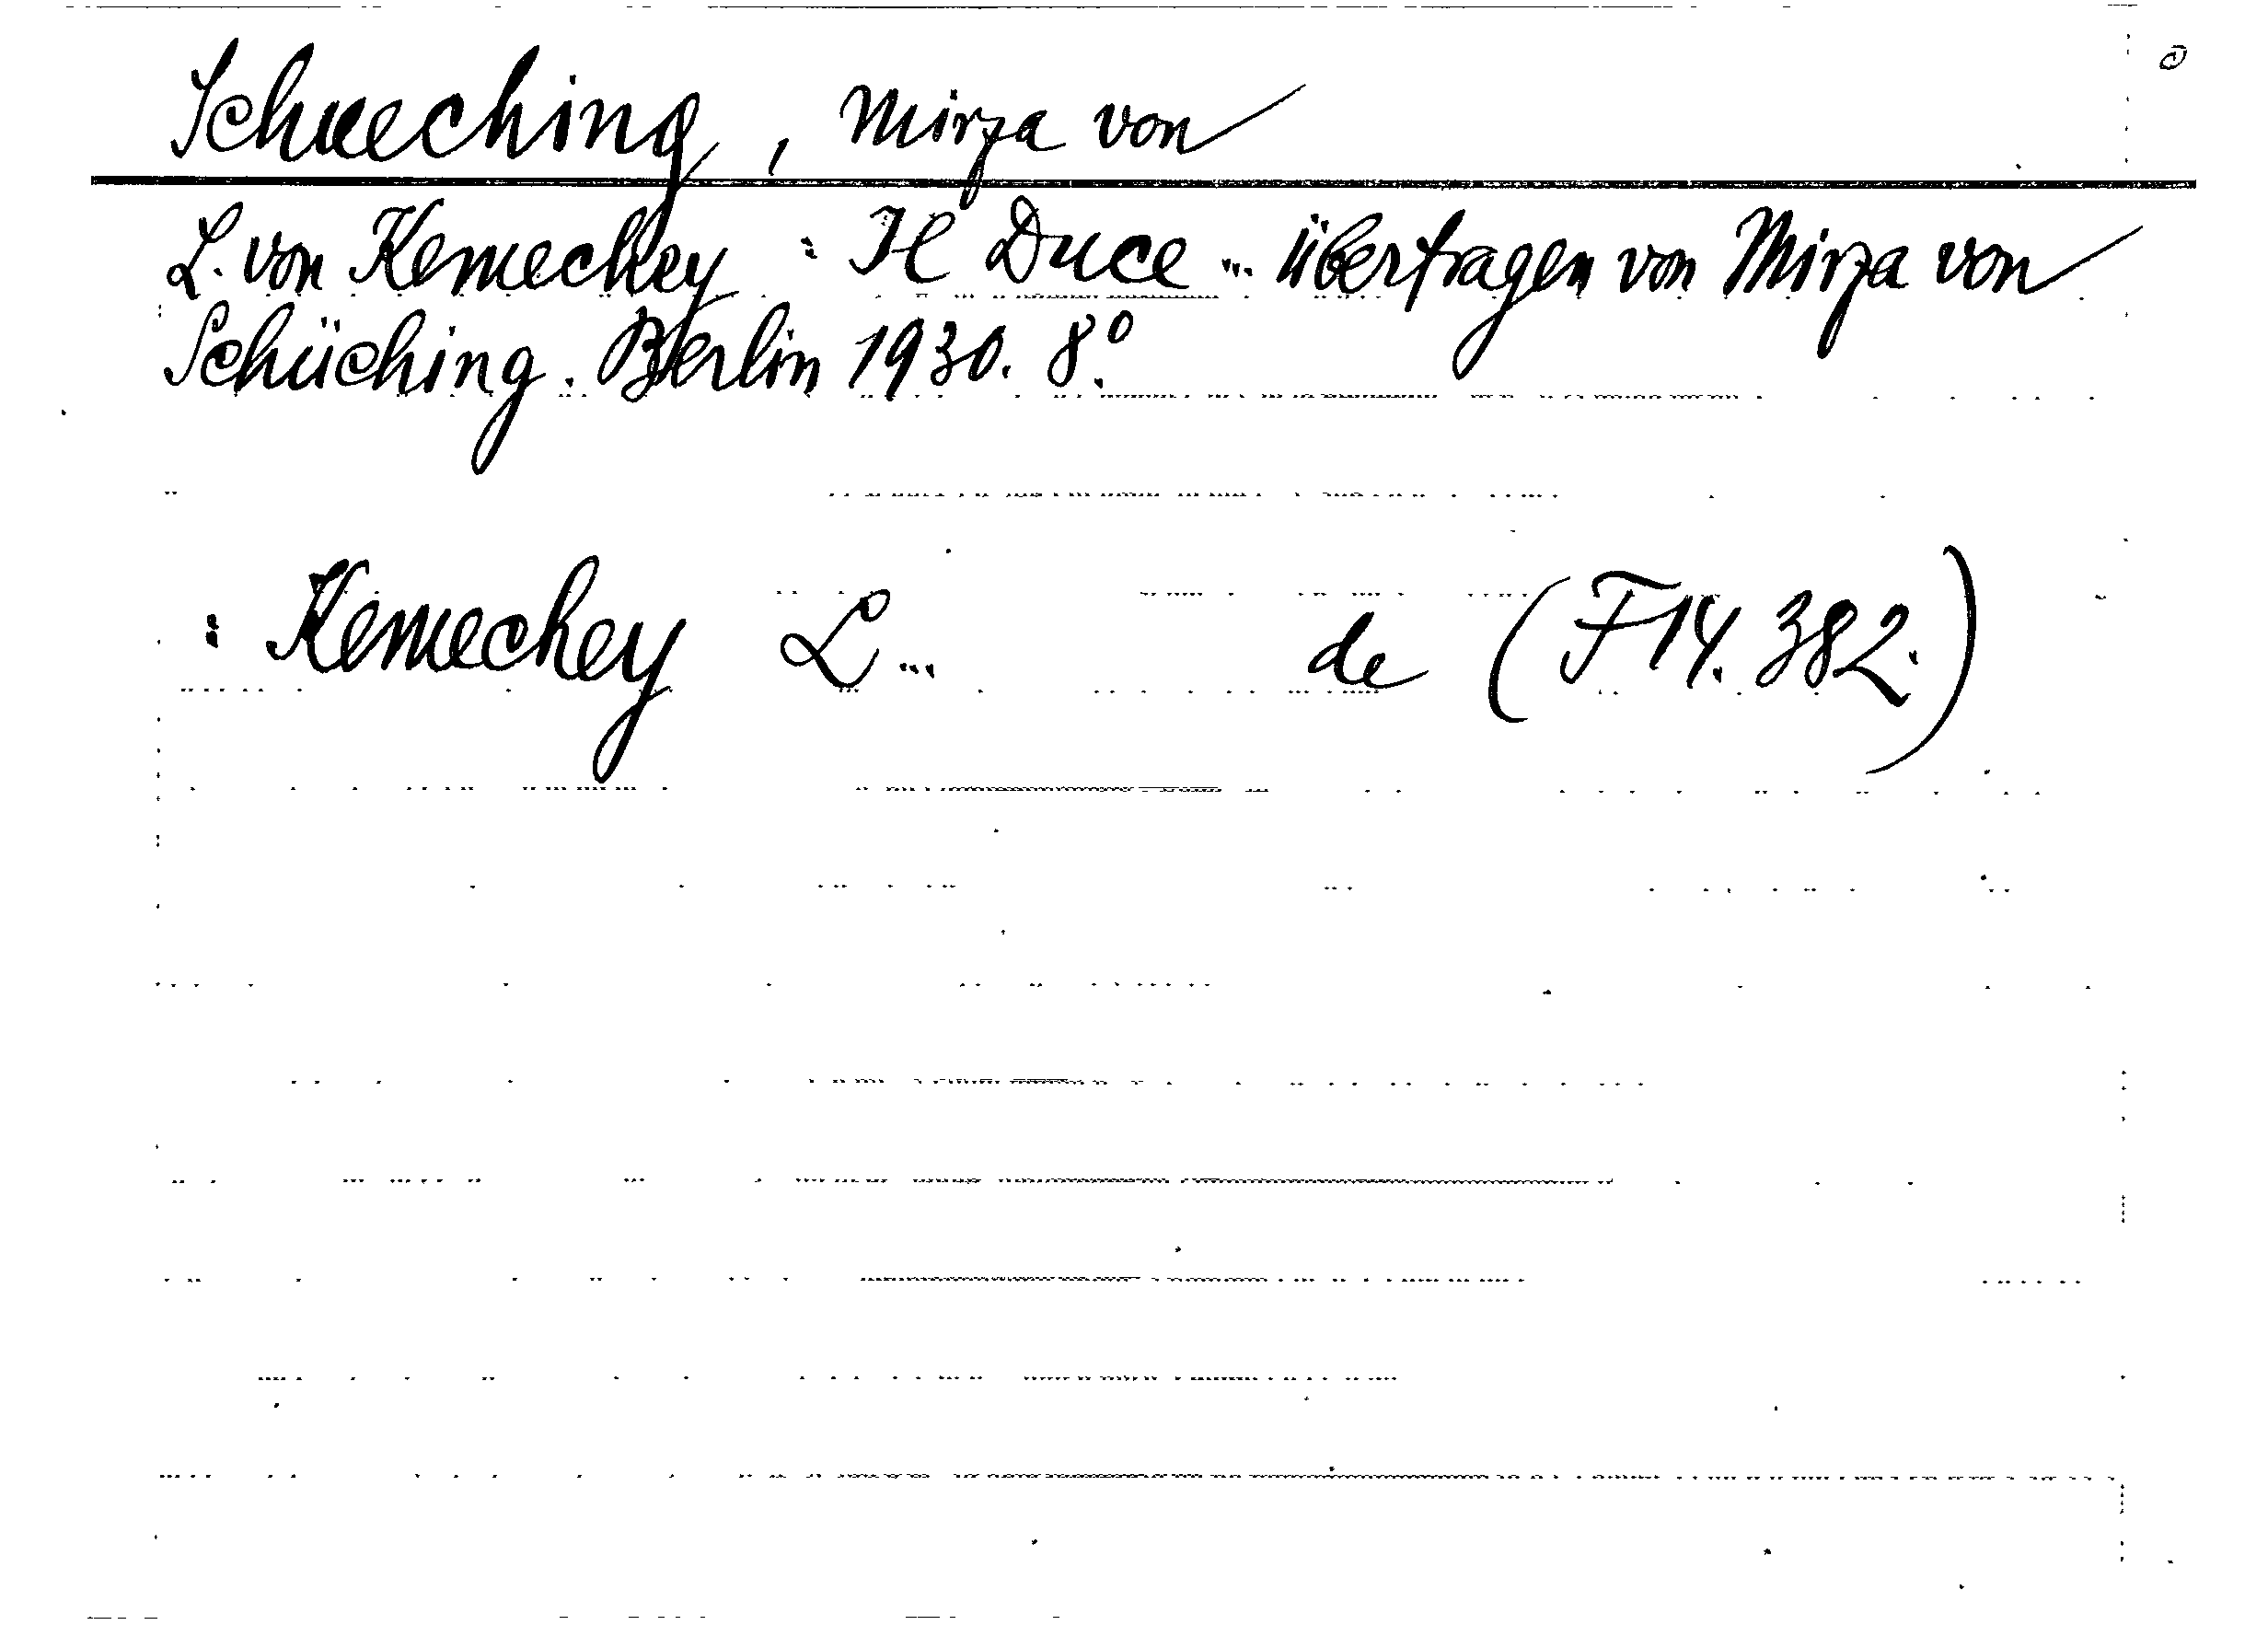 Schueching, Mirza von
L. von Kemechey : Il Duce ... übertragen von Mirza von
Schüching. Berlin 1930. 8º.
: Kemechey L... de (F14. 382.)